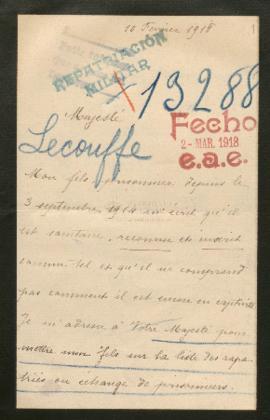 10 Février 1918
1
REPATRIACIÓN
MILITAR
x 13288
Majesté
Lecouffe
Fecho
2 - MAR. 1918
e.a.e.
Mon fils prisonnier depuis le
3 septembre 1914 m'écrit qu'il
est sanitaire, reconnu et inscrit
comme tel et qu'il ne comprend
pas comment il est encore en captivité
Je m'adresse à Votre Majesté pour
mettre mon fils sur la liste des rapa
triés en échange de prisonniers.